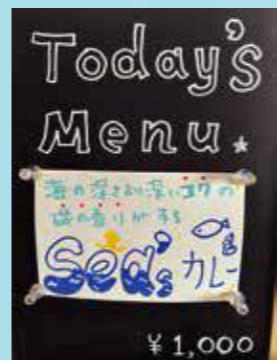 Today's
Menu.
海の深さより深いコクの
磯の香りがする
Sea's カレー
¥1,000